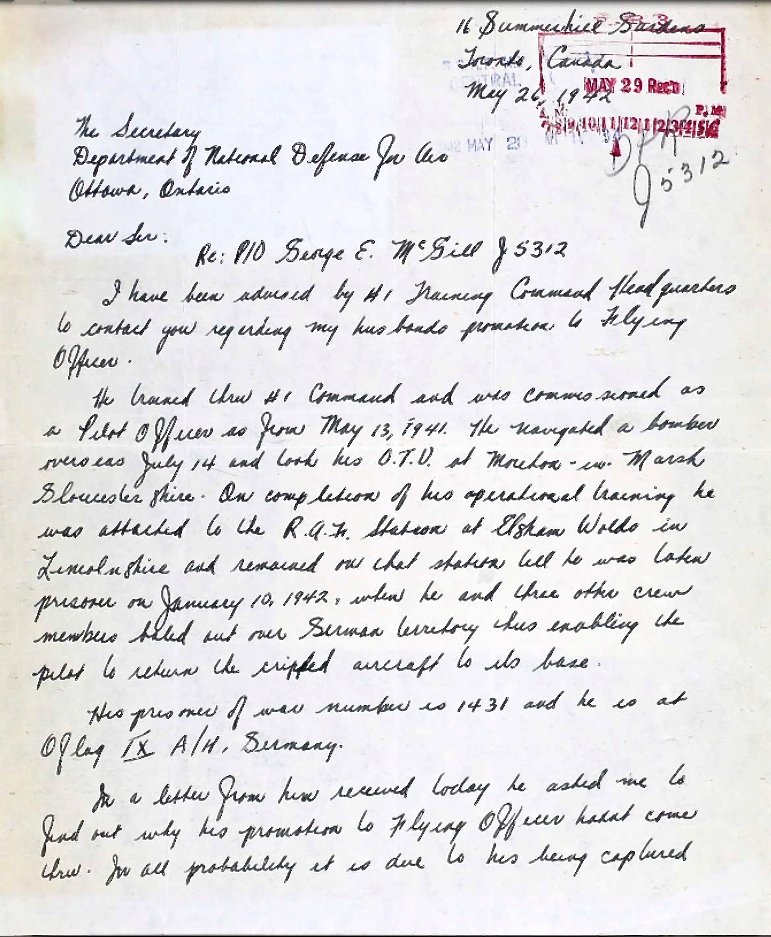 16 Summerhill Gardens
Toronto, Canada
May 26, 1942
CENTRAL
MAY 29 REC'D
A.M. P.M.
7|8|9|10|11|12|1|2|3|4|5|6
MAY 28
J5312
The Secretary
Department of National Defense For Air
Ottawa, Ontario
Dear Sir:
Re: P/O George E. McGill J5312
I have been advised by #1 Training Command Headquarters
to contact you regarding my husbands promotion to Flying
Officer.
He trained thru #1 Command and was commissioned as
a Pilot Officer as from May 13, 1941. He navigated a bomber
overseas July 14 and took his O.T.U. at Moreton-in-Marsh
Gloucestershire. On completion of his operational training he
was attached to the R.A.F. Station at Elsham Wolds in
Lincolnshire and remained on that station till he was taken
prisoner on January 10, 1942, when he and three other crew
members baled out over German territory thus enabling the
pilot to return the crippled aircraft to its base.
His prisoner of war number is 1431 and he is at
Oflag IX A/H, Germany.
In a letter from him received today he asked me to
find out why his promotion to Flying Officer hasnt come
thru. In all probability it is due to his being captured